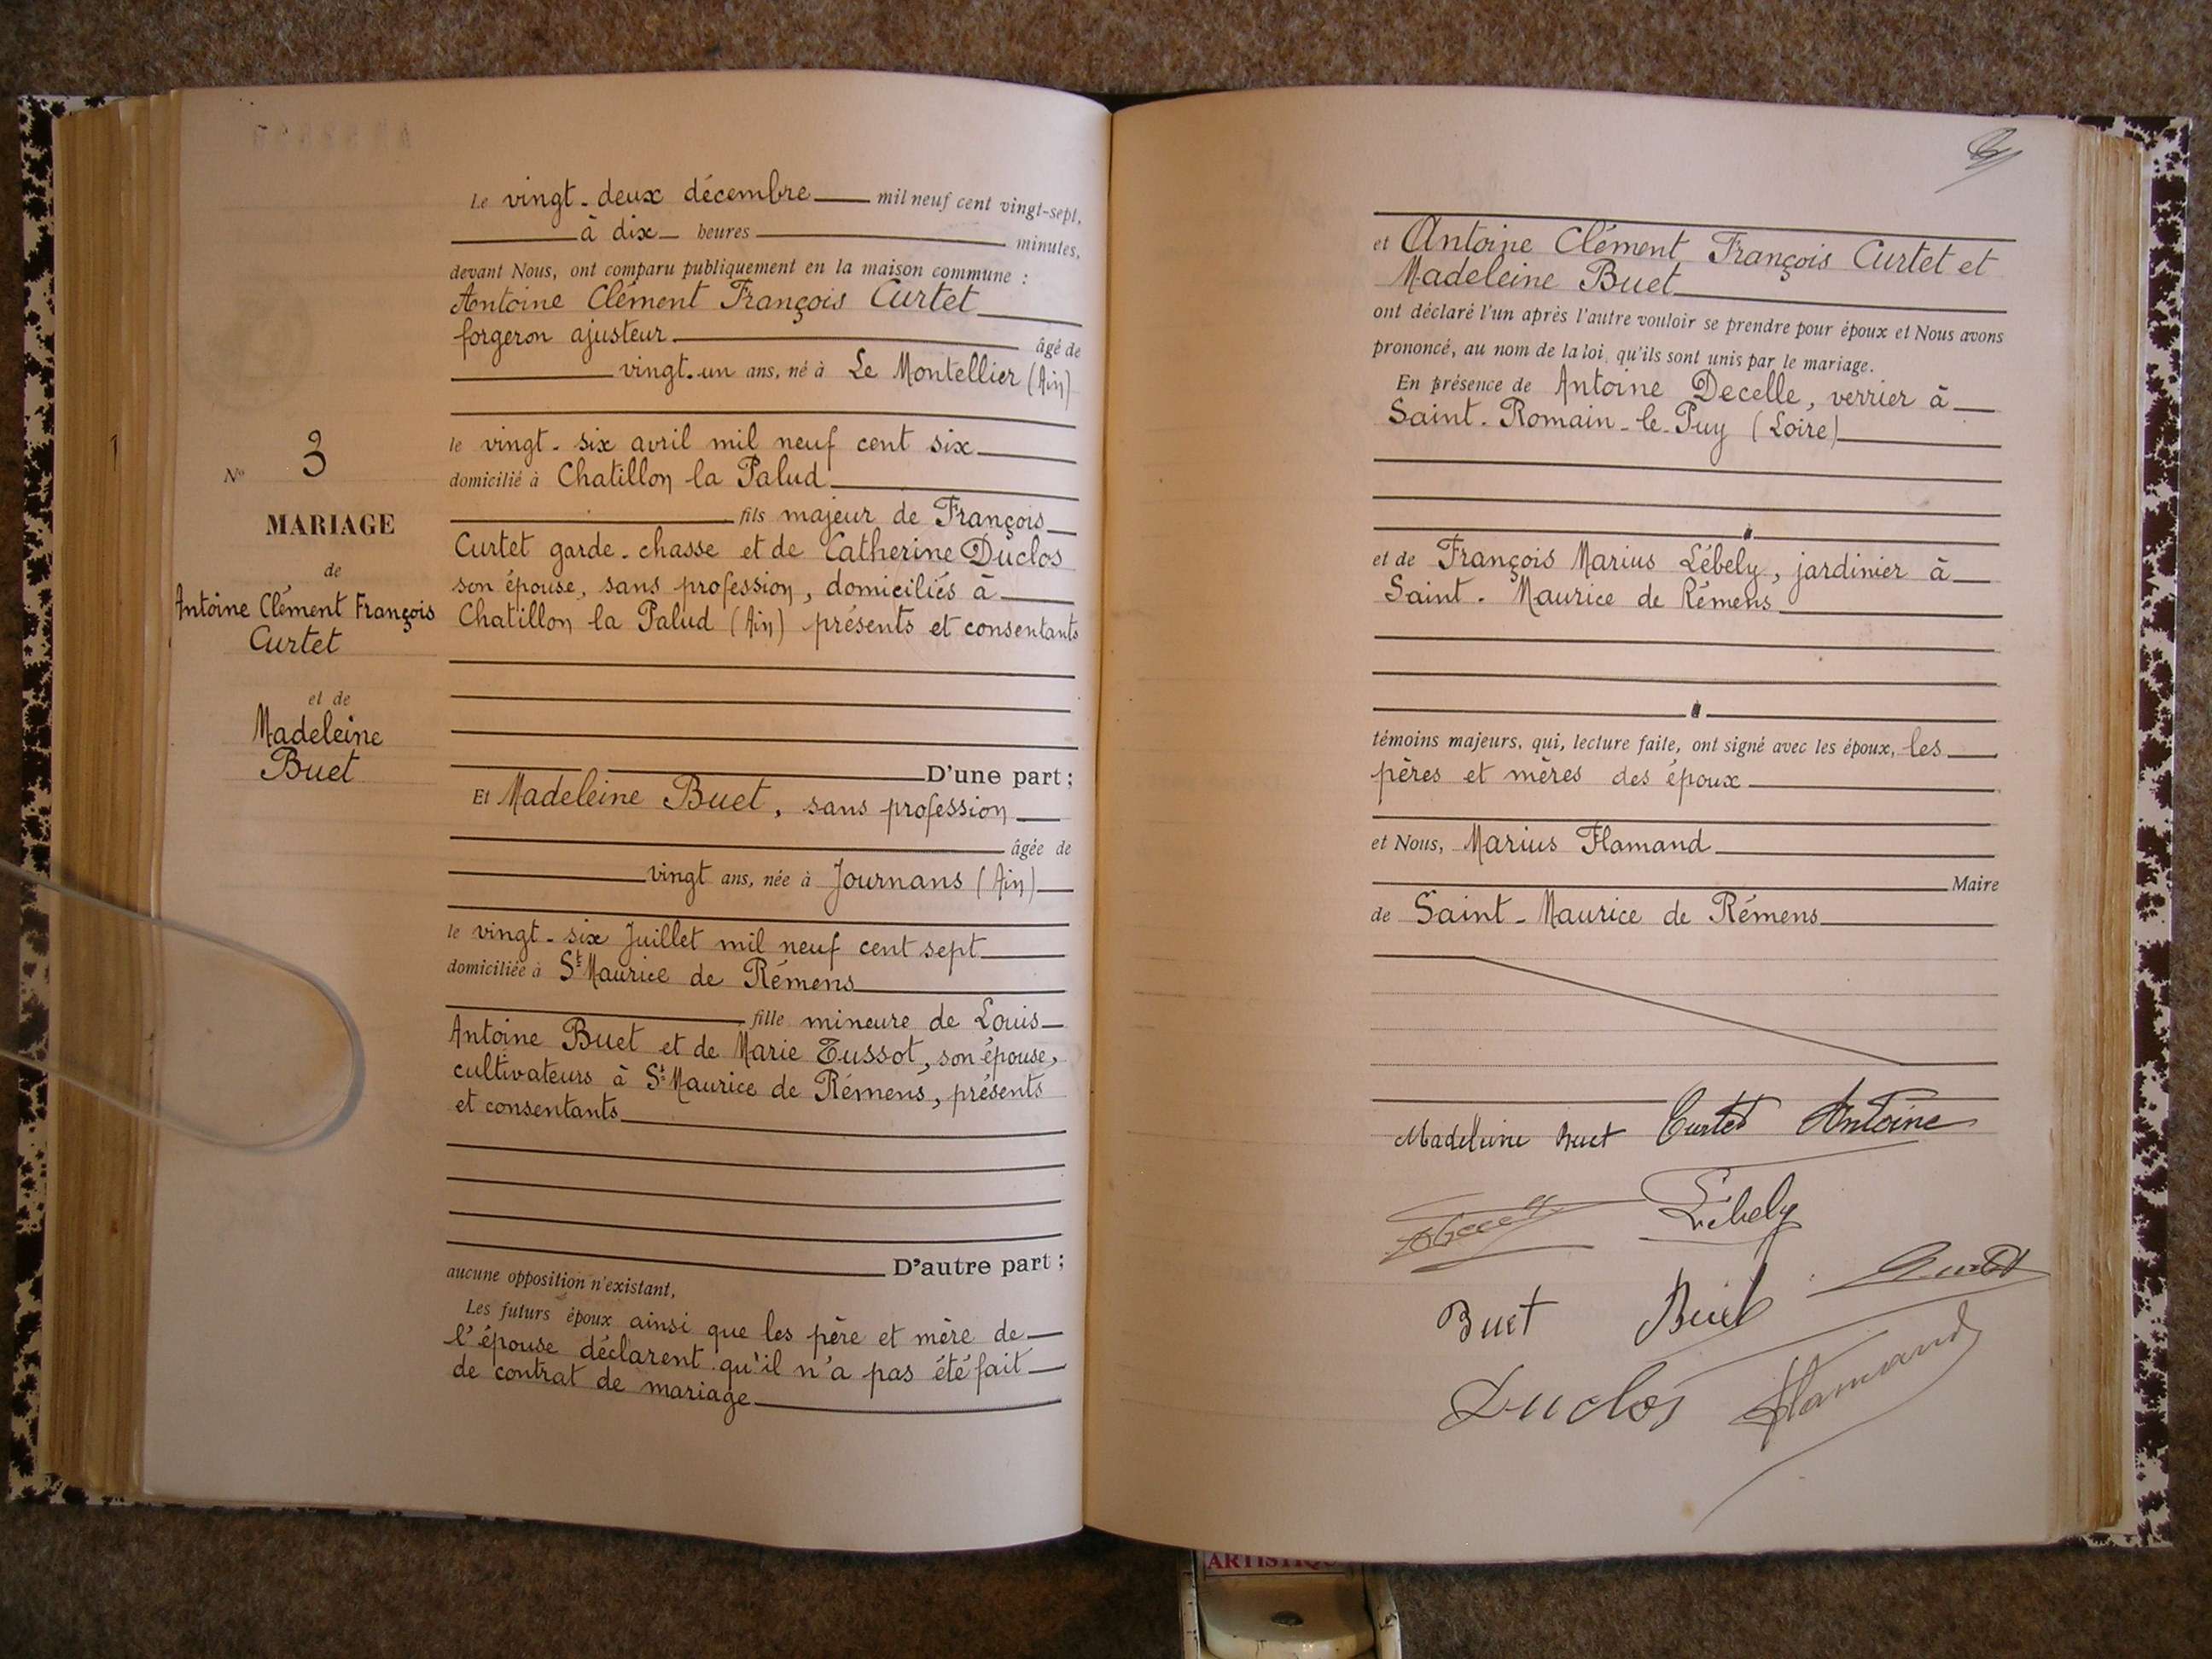 Le vingt-deux décembre mil neuf cent vingt-sept,
à dix heures minutes,
devant Nous, ont comparu publiquement en la maison commune :
Antoine Clément François Curtet
forgeron ajusteur âgé de
vingt-un ans, né à Le Montellier (Ain)
le vingt-six avril mil neuf cent six
domicilié à Chatillon la Palud
fils majeur de François
Curtet garde-chasse et de Catherine Duclos
son épouse, sans profession, domiciliés à
Chatillon la Palud (Ain) présents et consentants
D'une part ;
Et Madeleine Buet, sans profession
âgée de
vingt ans, née à Journans (Ain)
le vingt-six Juillet mil neuf cent sept
domiciliée à St Maurice de Rémens
fille mineure de Louis
Antoine Buet et de Marie Tussot, son épouse,
cultivateurs à St Maurice de Rémens, présents
et consentants
D'autre part ;
aucune opposition n'existant,
Les futurs époux ainsi que les père et mère de
l'épouse déclarent qu'il n'a pas été fait
de contrat de mariage
No 3
MARIAGE
de
Antoine Clément François
Curtet
et de
Madeleine
Buet
et Antoine Clément François Curtet et
Madeleine Buet
ont déclaré l'un après l'autre vouloir se prendre pour époux et Nous avons
prononcé, au nom de la loi, qu'ils sont unis par le mariage.
En présence de Antoine Decelle, verrier à
Saint-Romain-le-Puy (Loire)
et de François Marius Lébely, jardinier à
Saint-Maurice de Rémens
témoins majeurs, qui, lecture faite, ont signé avec les époux, les
pères et mères des époux
et Nous, Marius Flamand
Maire
de Saint-Maurice de Rémens
Madeleine Buet Curtet Antoine
Lébely
Buet Buet Curtet
Duclos Flamand